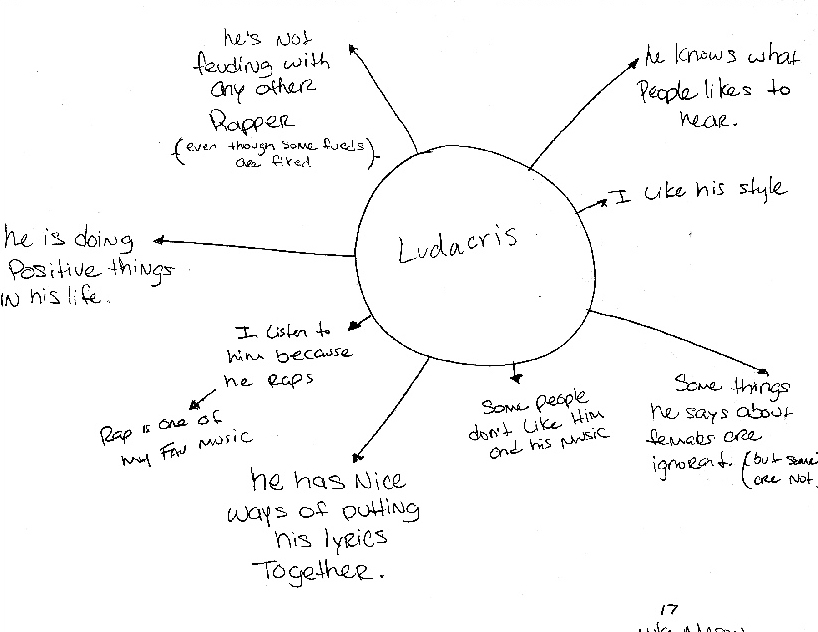 he's Not
feuding with
any other
Rapper
(even though some fueds)
are fixed
he knows what
People likes to
hear.
I Like his style
Ludacris
he is doing
Positive things
IN his life.
I Listen to
him because
he Raps
Rap is one of
my Fav Music
he has Nice
ways of putting
his lyrics
Together.
Some people
don't Like Him
and his Music
Some things
he says about
females are
ignorant. (but some
are Not.
17